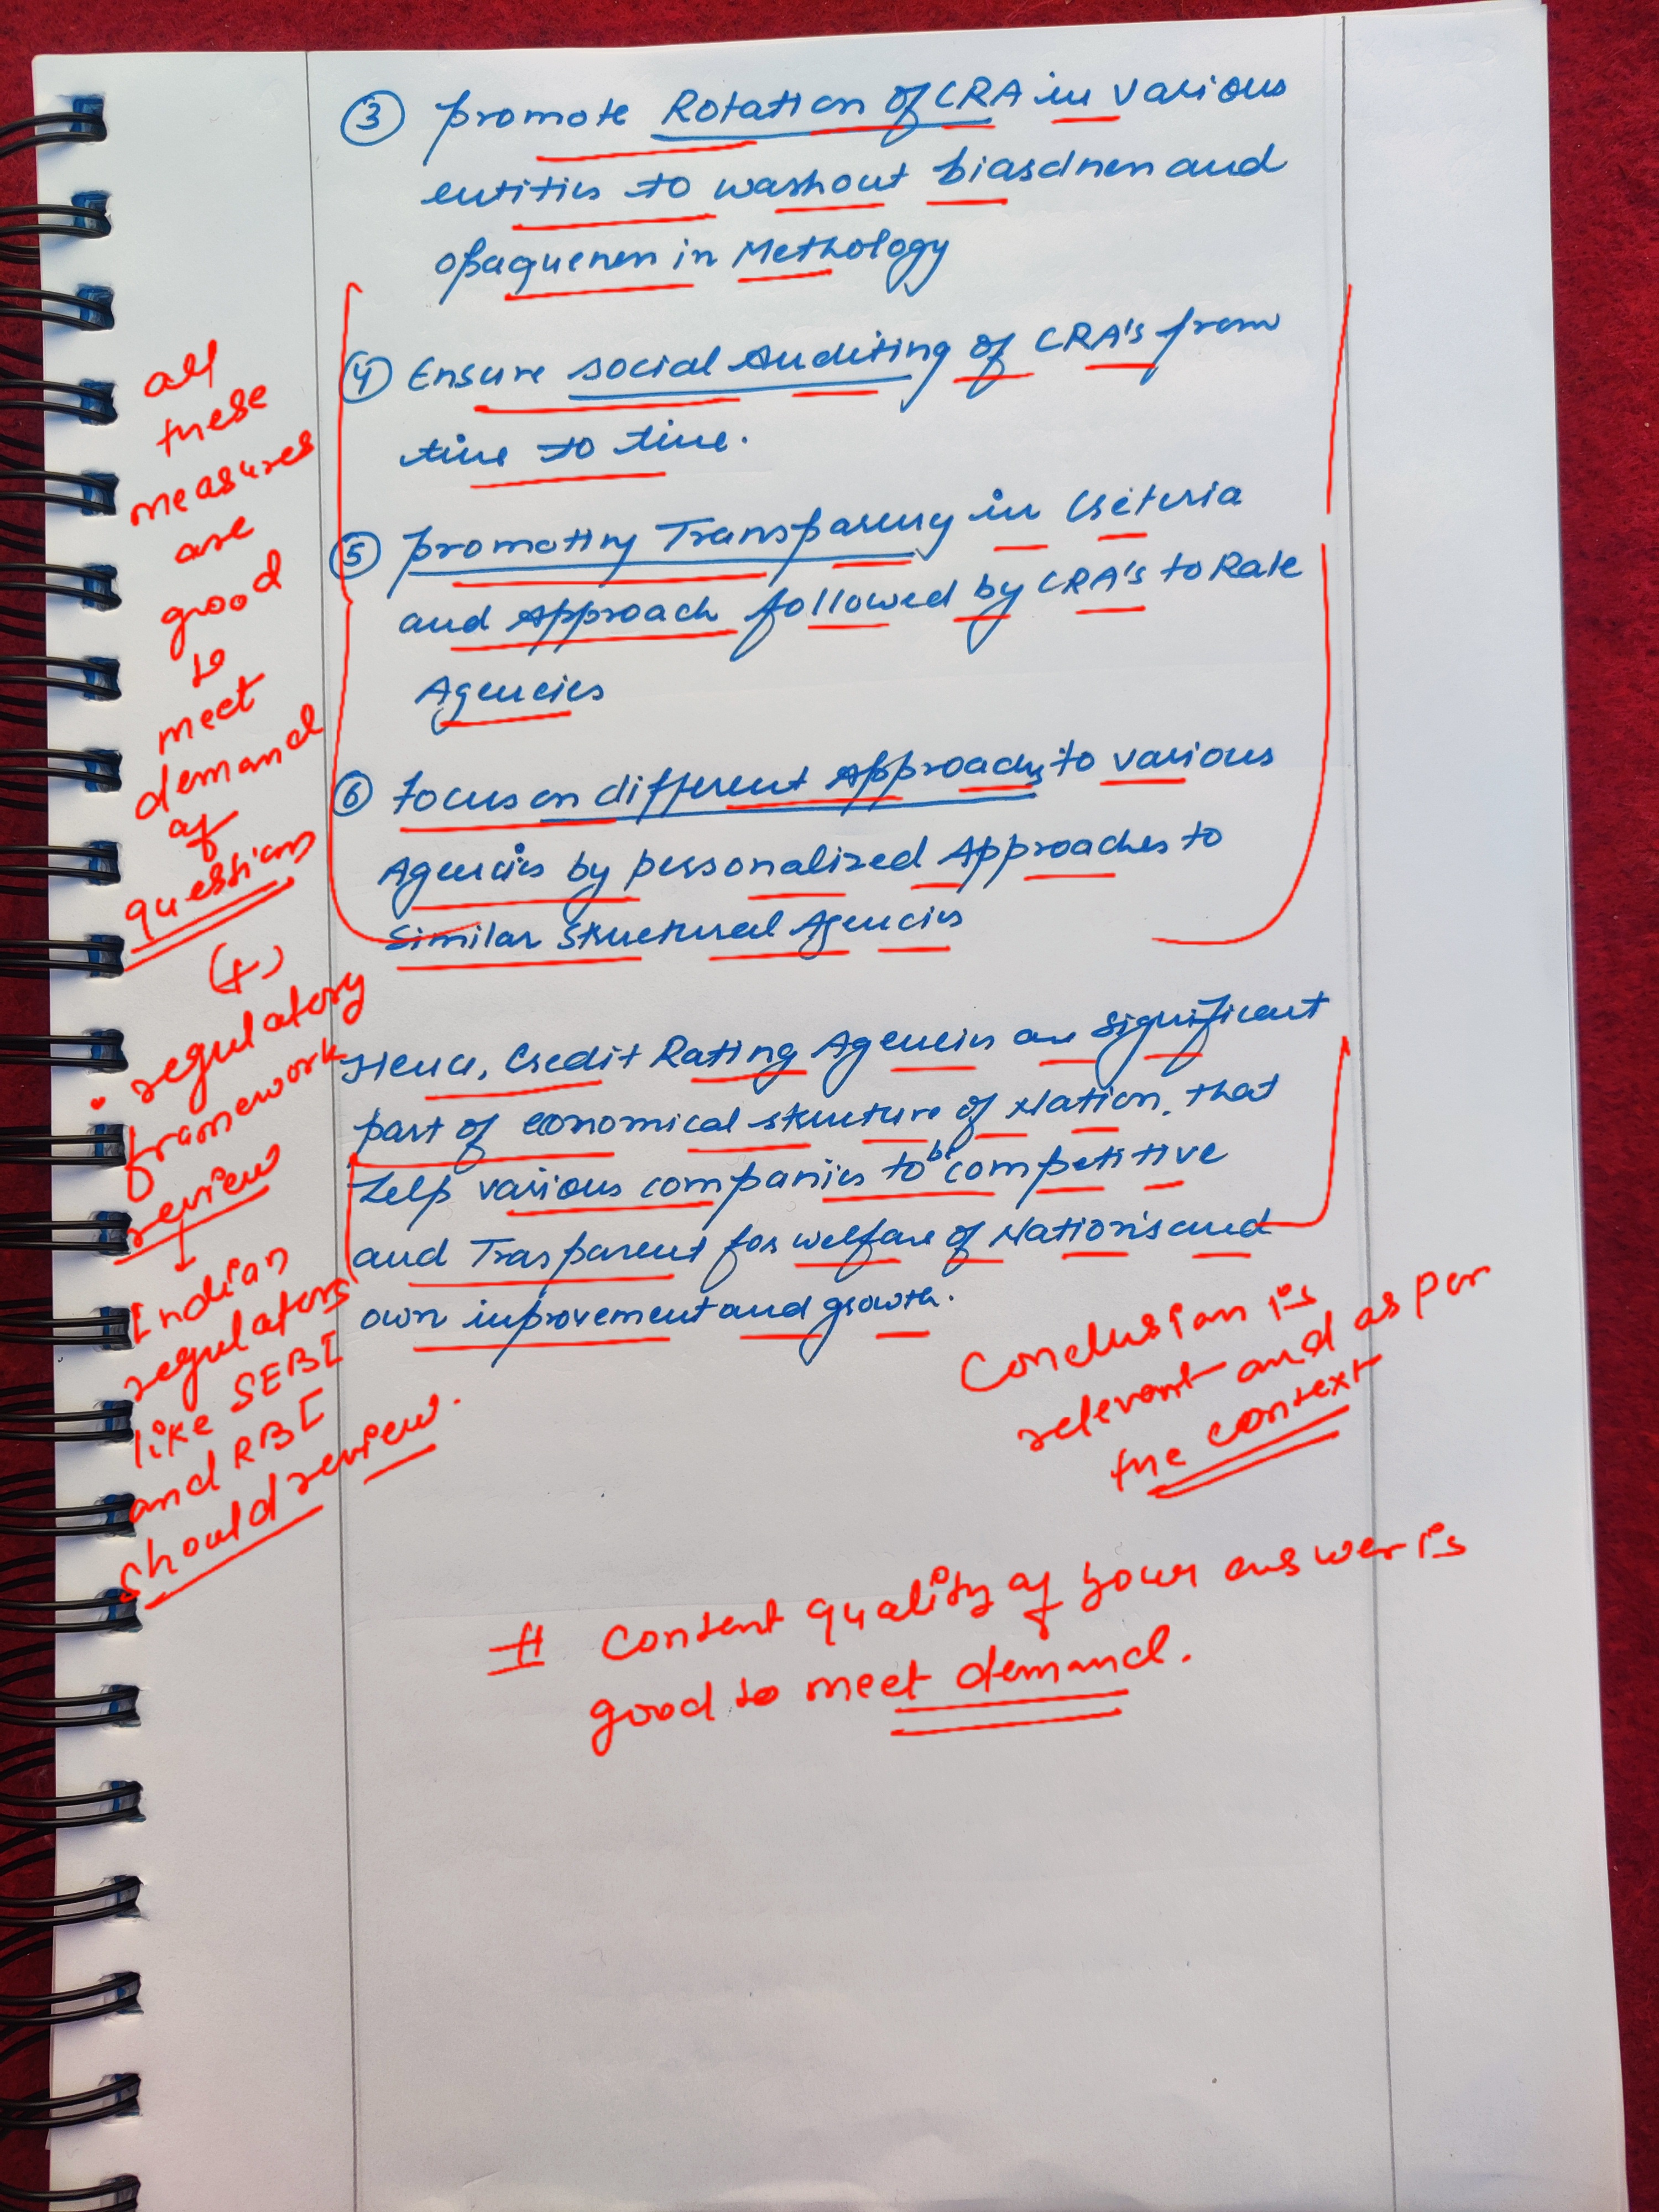 ③ promote Rotation of CRA in various
entities to washout biasdness and
opaqueness in Methology
④ Ensure social Auditing of CRA's from
time to time.
⑤ promoting Transparency in Criteria
and Approach followed by CRA's to Rate
Agencies
⑥ Focus on different Approachs to various
Agencies by personalized Approaches to
Similar Structural Agencies
Hence, Credit Rating Agencies are significant
part of economical structure of Nation, that
help various companies to be competitive
and Trasparent for welfare of Nation's and
own improvement and growth.
all
these
measures
are
good
to
meet
demand
of
question
(+)
• regulatory
framework
review
↓
Indian
regulators
like SEBI
and RBI
should review.
Conclusion is
relevant and as per
the context
# Content quality of your answer is
good to meet demand.